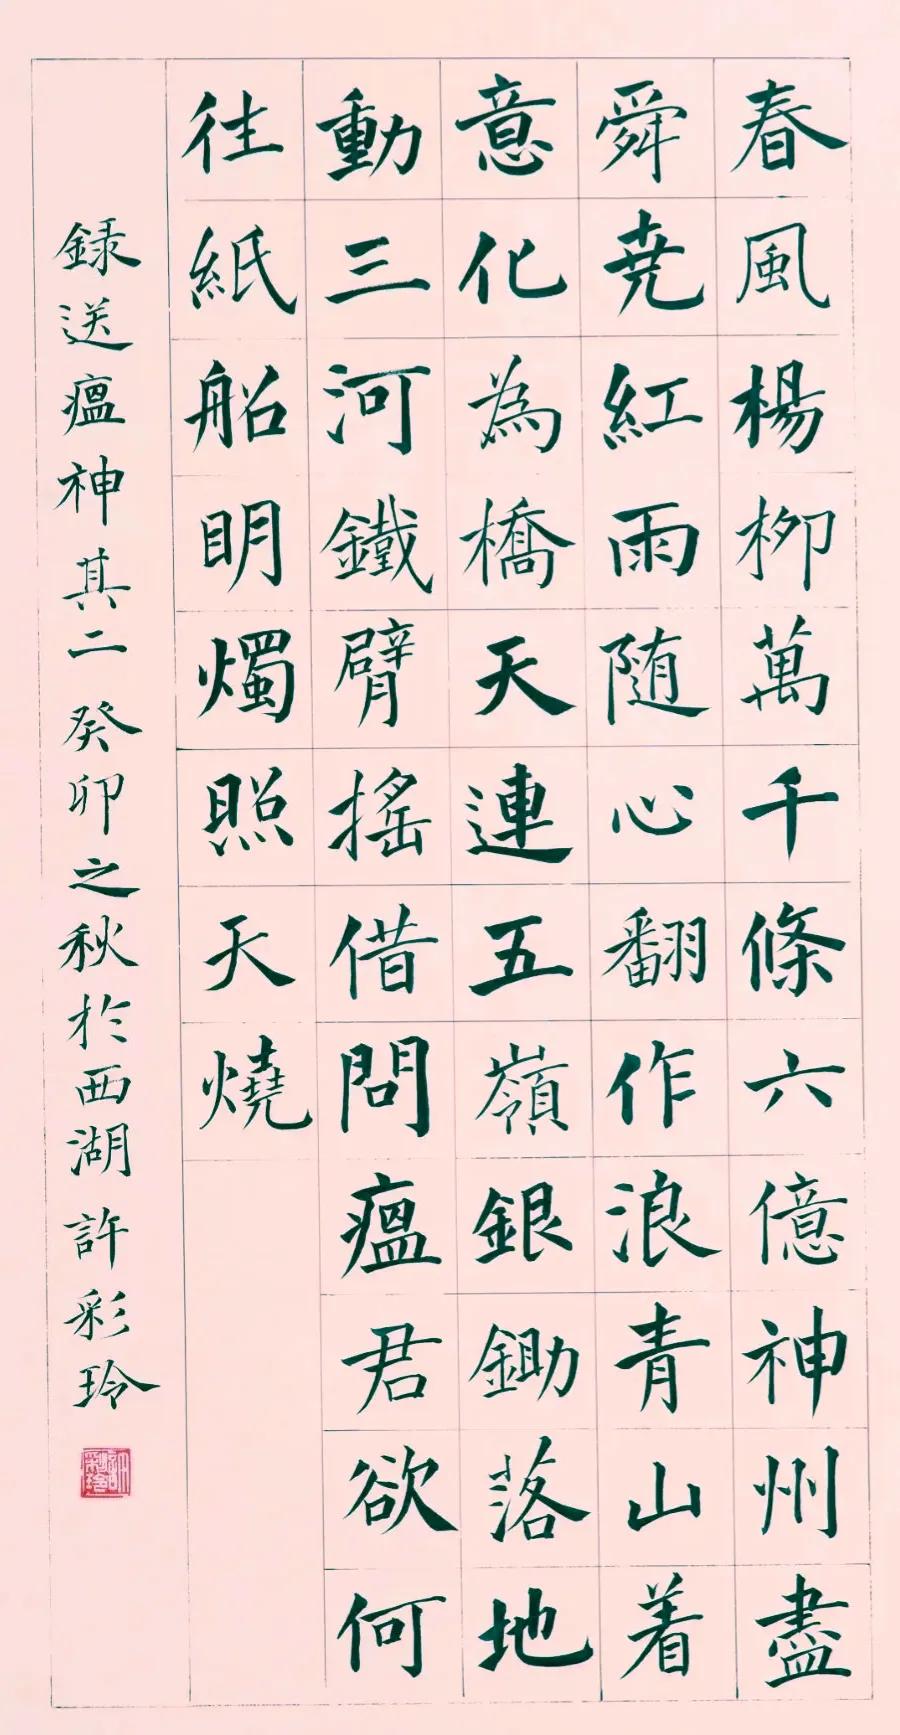 春風楊柳萬千條六億神州盡
舜尭紅雨随心翻作浪青山着
意化為橋天連五嶺銀鋤落地
動三河鐵臂搖借問瘟君欲何
往紙船明燭照天燒
録送瘟神其二癸卯之秋於西湖許彩玲
許彩玲